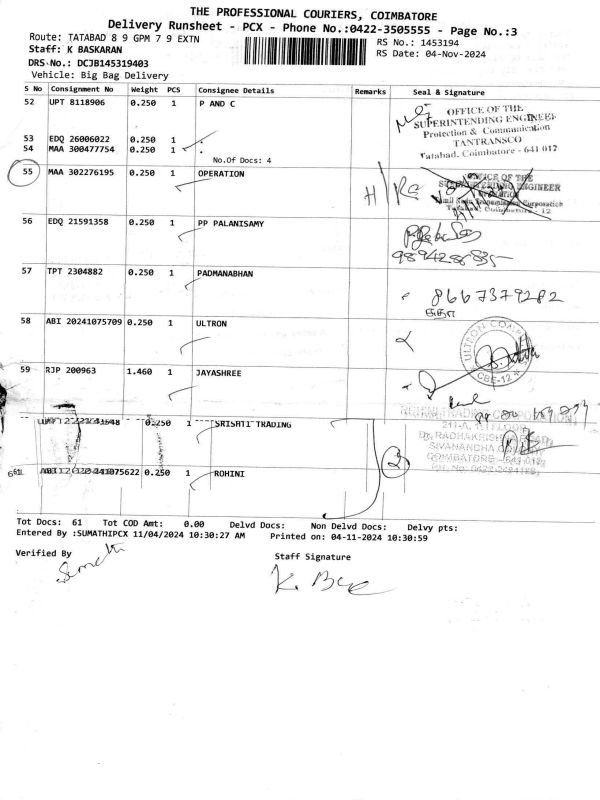 THE PROFESSIONAL COURIERS, COIMBATORE
Delivery Runsheet - PCX - Phone No.:0422-3505555 - Page No.:3
Route: TATABAD 8 9 GPM 7 9 EXTN
RS No.: 1453194
Staff: K BASKARAN
RS Date: 04-Nov-2024
DRS No.: DCJB145319403
Vehicle: Big Bag Delivery
S No Consignment No Weight PCS Consignee Details Remarks Seal & Signature
52 UPT 8118906 0.250 1 P AND C
OFFICE OF THE
SUPERINTENDING ENGINEER
Protection & Communication
TANTRANSCO
Tatabad, Coimbatore - 641 012
53 EDQ 26006022 0.250 1 .
54 MAA 300477754 0.250 1 .
No.Of Docs: 4
55 MAA 302276195 0.250 1 OPERATION
OFFICE OF THE
ENGINEER
Tamil Nadu Transmission Corporation
Tatabad, Coimbatore - 12
56 EDQ 21591358 0.250 1 PP PALANISAMY
57 TPT 2304882 0.250 1 PADMANABHAN
8667379282
58 ABI 20241075709 0.250 1 ULTRON
CBE-12
59 RJP 200963 1.460 1 JAYASHREE
0.250 1 SRISHTI TRADING
TRADING CORPORATION
211-A, 1st FLOOR
Dr. RADHAKRISHNAN ROAD
SIVANANDHA COLONY
COIMBATORE - 641 012
61 0.250 1 ROHINI
3
Tot Docs: 61 Tot COD Amt: 0.00 Delvd Docs: Non Delvd Docs: Delvy pts:
Entered By :SUMATHIPCX 11/04/2024 10:30:27 AM Printed on: 04-11-2024 10:30:59
Verified By Staff Signature
Sumathi